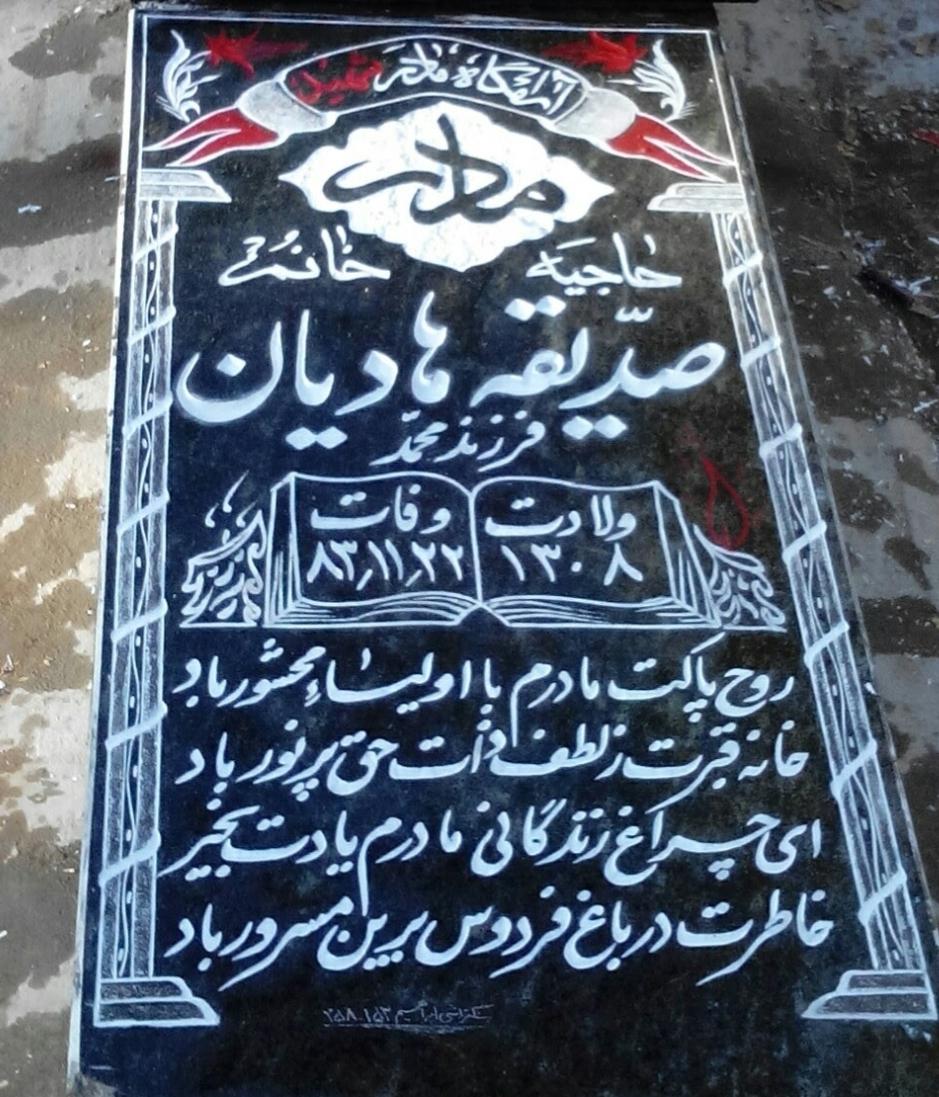 آرامگاه مادر شهید
مادر
حاجیه خانم
صدّیقه هادیان
فرزند محمّد
ولادت وفات
۱۳۰۸ ۸۳٫۱۱٫۲۲
روح پاکت مادرم با اولیاء محشور باد
خانه قبرت ز لطف ذات حق پر نور باد
ای چراغ زندگانی مادرم یادت بخیر
خاطرت در باغ فردوس برین مسرور باد